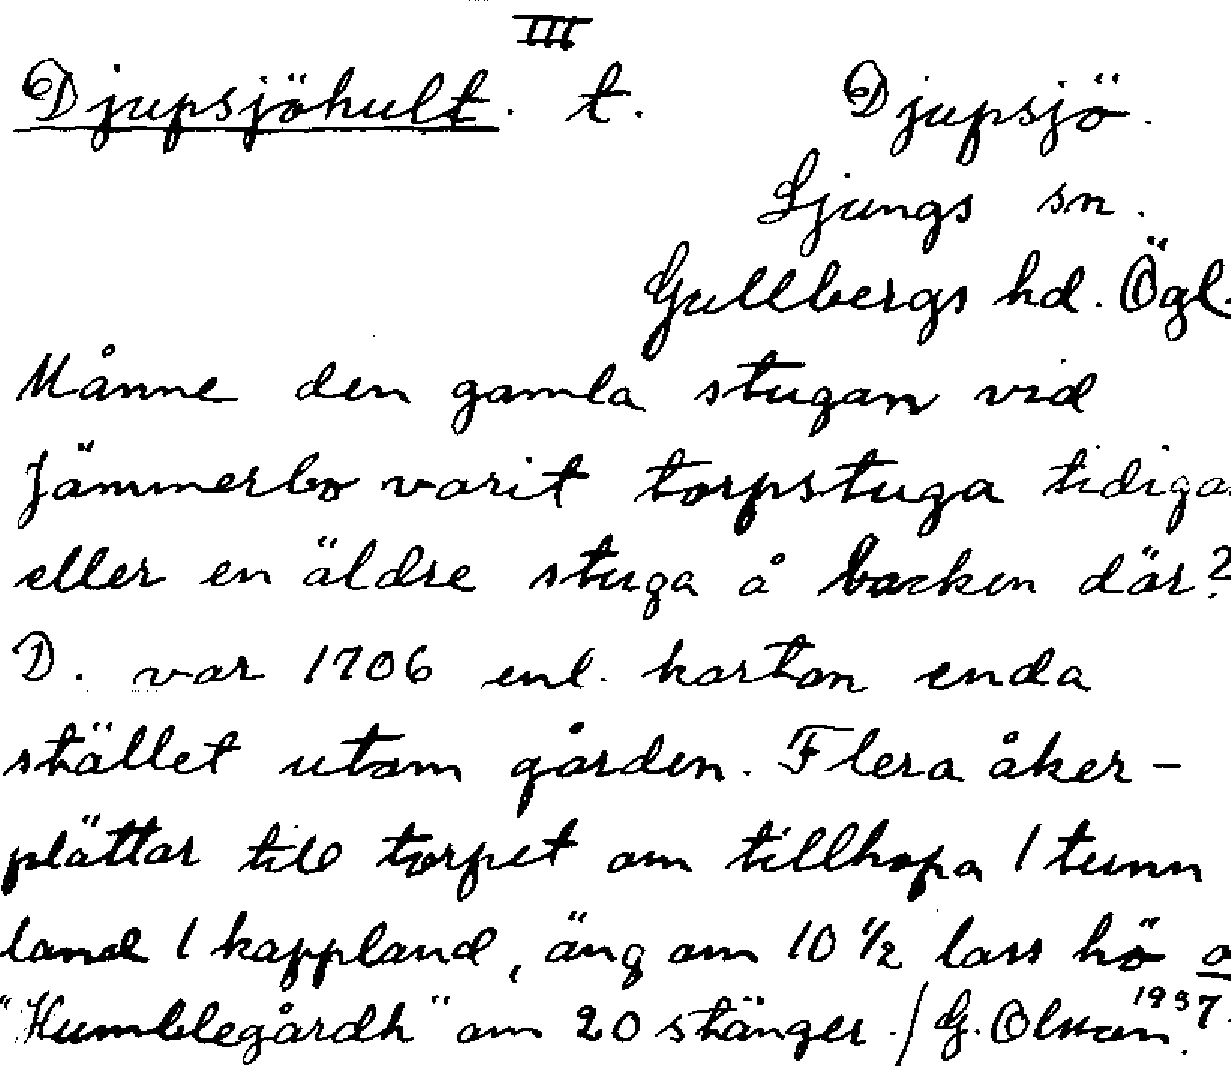 III
Djupsjöhult. t. Djupsjö.
Ljungs sn.
Gullbergs hd. Ögl.
Månne den gamla stugan vid
Jämmerbo varit torpstuga tidiga
eller en äldre stuga å backen där?
D. var 1706 enl. kartan enda
stället utom gården. Flera åker-
plättar till torpet om tillhopa 1 tunn
land 1 kappland, äng om 10 1/2 lass hö o
"Humblegårdh" om 20 stänger./G. Olsson 1937.